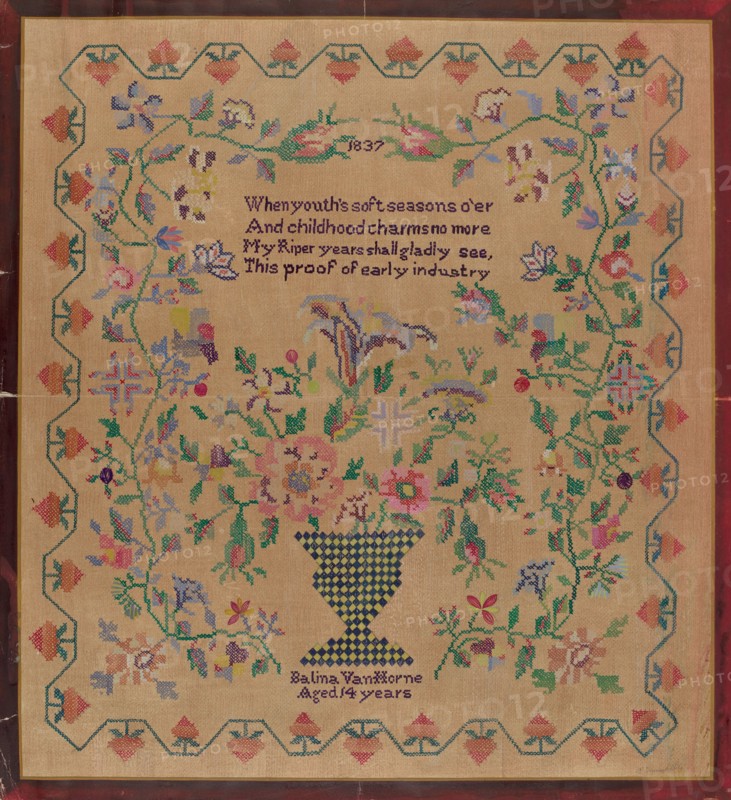 1837
When youth's soft seasons o'er
And childhood charms no more
My Riper years shall gladly see,
This proof of early industry
Salina VanHorne
Aged 14 years
PHOTO12